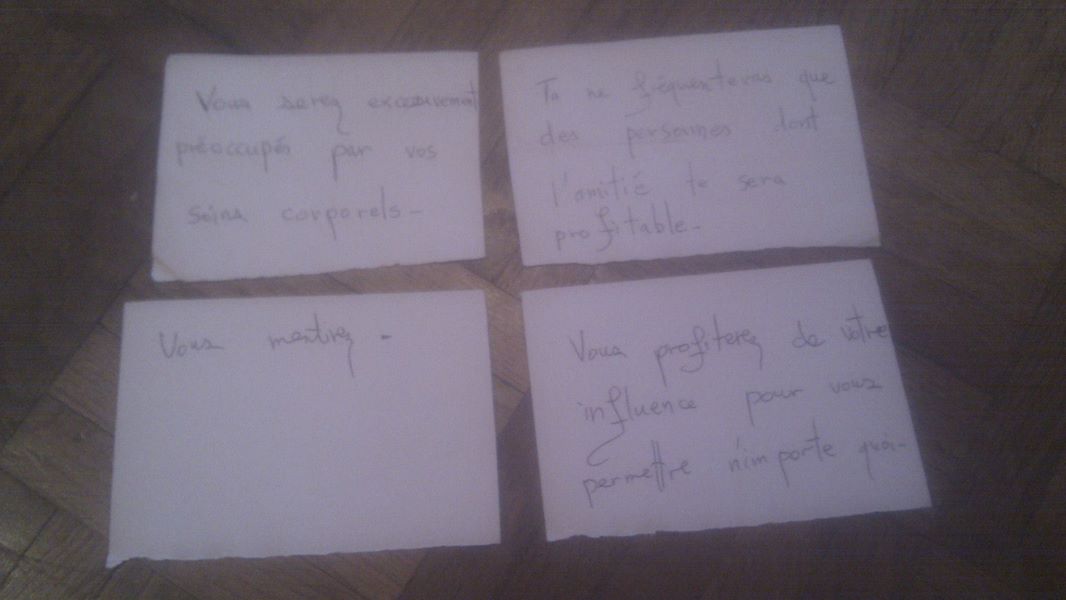 Vous serez excessivement
préoccupés par vos
soins corporels-
Tu ne fréquenteras que
des personnes dont
l'amitié te sera
profitable.
Vous mentirez.
Vous profiterez de votre
influence pour vous
permettre n'importe quoi-